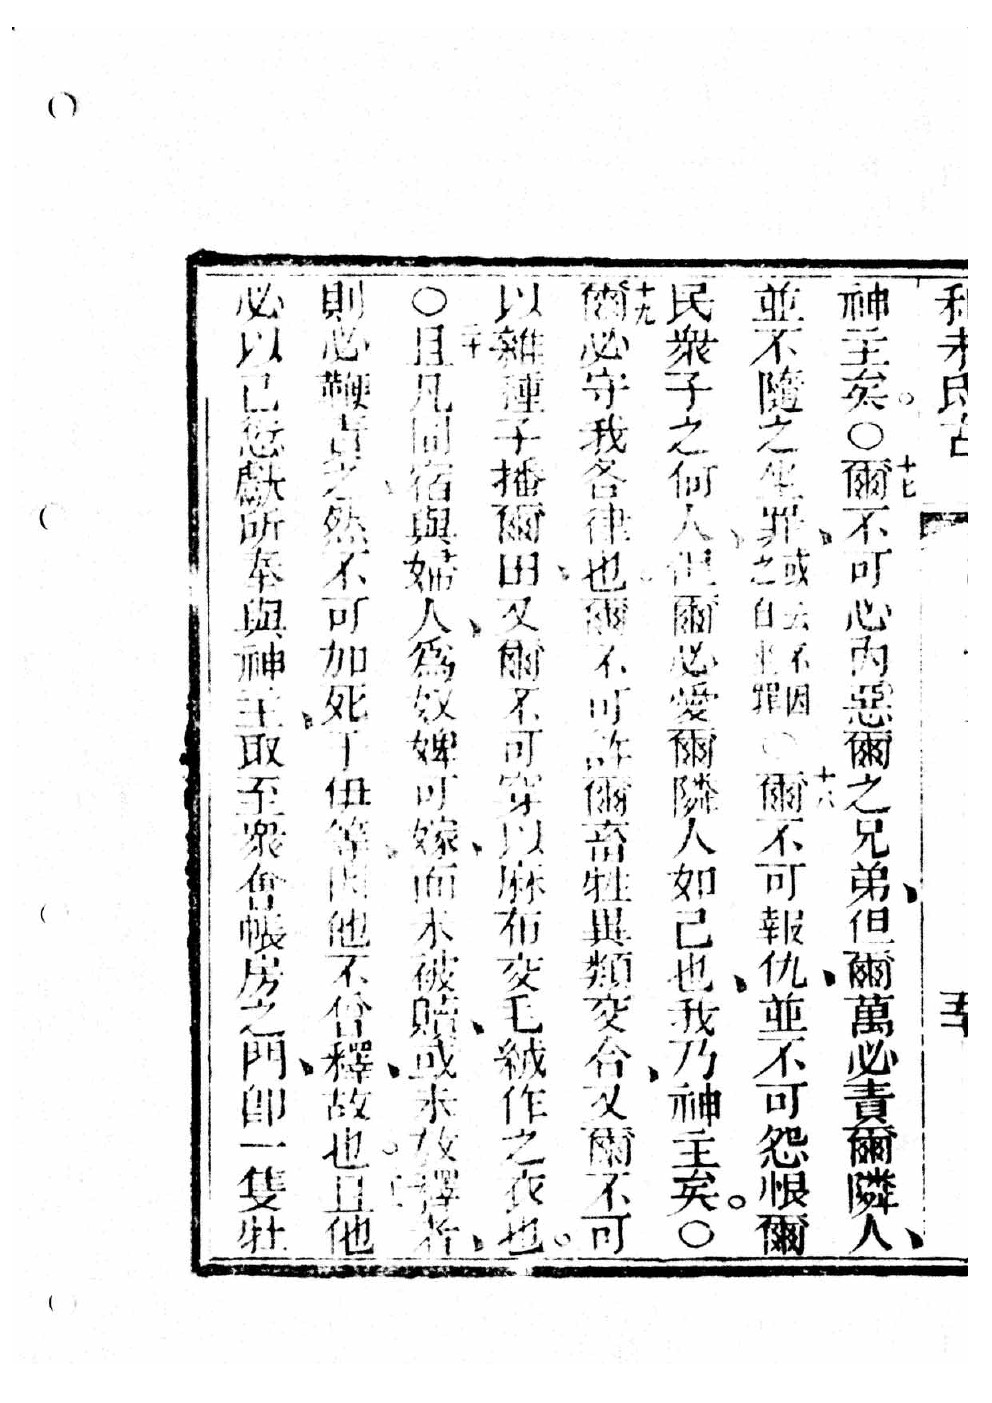 利未氏古
五
神主矣。○十七爾不可心內惡爾之兄弟、但爾萬必責爾隣人、
並不隨之坐罪、或云不因之自坐罪○十八爾不可報仇、並不可怨恨爾
民衆子之何人、但爾必愛爾隣人如己也、我乃神主矣。○
十九爾必守我各律也。爾不可許爾畜牲異類交合、又爾不可
以雜種子播爾田、又爾不可穿以麻布交毛絨作之衣也。
○二十且凡同宿與婦人、爲奴婢可嫁、而未被贖、或未放釋者、
則必鞭責之、然不可加死于伊等、因他不曾釋故也。且他
必以已愆獻所奉與神主、取至衆會帳房之門、卽一隻牡